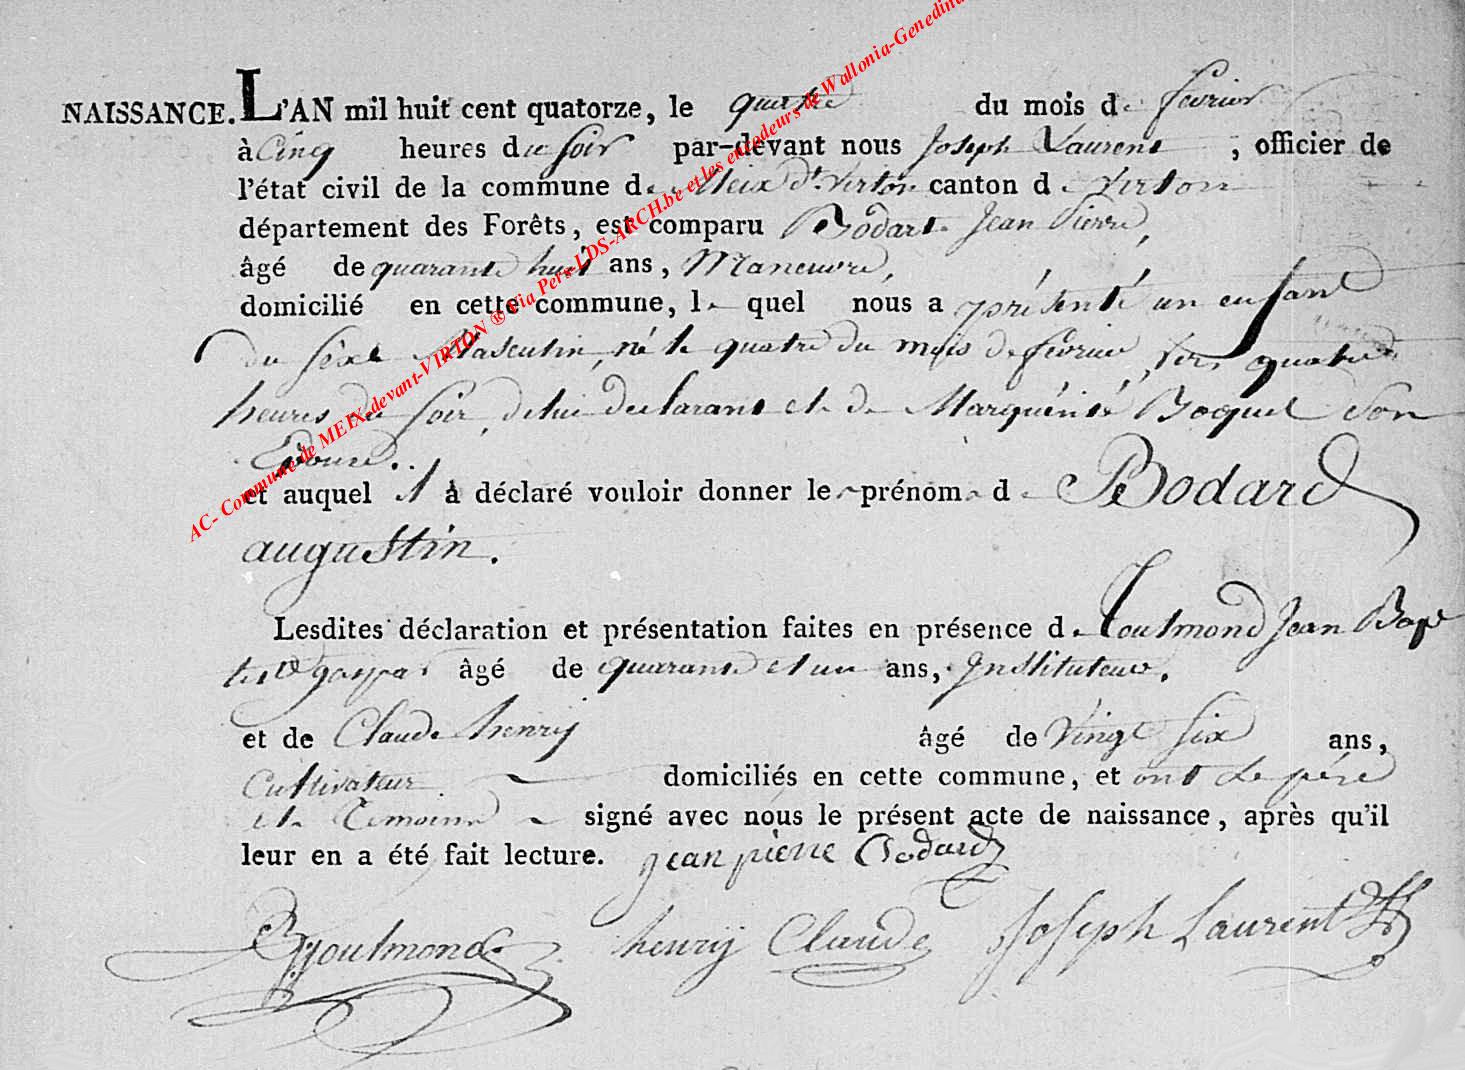 NAISSANCE. L'AN mil huit cent quatorze, le quatre du mois de fevrier
à Cinq heures du soir par-devant nous Joseph Laurent, officier de
l'état civil de la commune de Meix dt Virton canton de Virton
département des Forêts, est comparu Bodart Jean Pierre,
âgé de quarante huit ans, Maneuvre,
domicilié en cette commune, le quel nous a présenté un enfant
du séxe Masculin, né le quatre du mois de février, vers quatre
heures du soir, de lui declarant et de Marguérite Boquel son
Epouse.
et auquel il à déclaré vouloir donner le prénom de Bodard
augustin.
Lesdites déclaration et présentation faites en présence de Toulmond Jean Bap
tiste gaspar âgé de quarante et un ans, Instituteur,
et de Claude henry âgé de Vingt six ans,
Cultivateur domiciliés en cette commune, et ont le pére
et Temoins signé avec nous le présent acte de naissance, après qu'il
leur en a été fait lecture. jean pierre Bodard
Toulmond henry Claude Joseph Laurent
AC- Commune de MEIX-devant-VIRTON ® Via Pers-LDS-ARCH.be et les encodeurs de Wallonia-Genedina